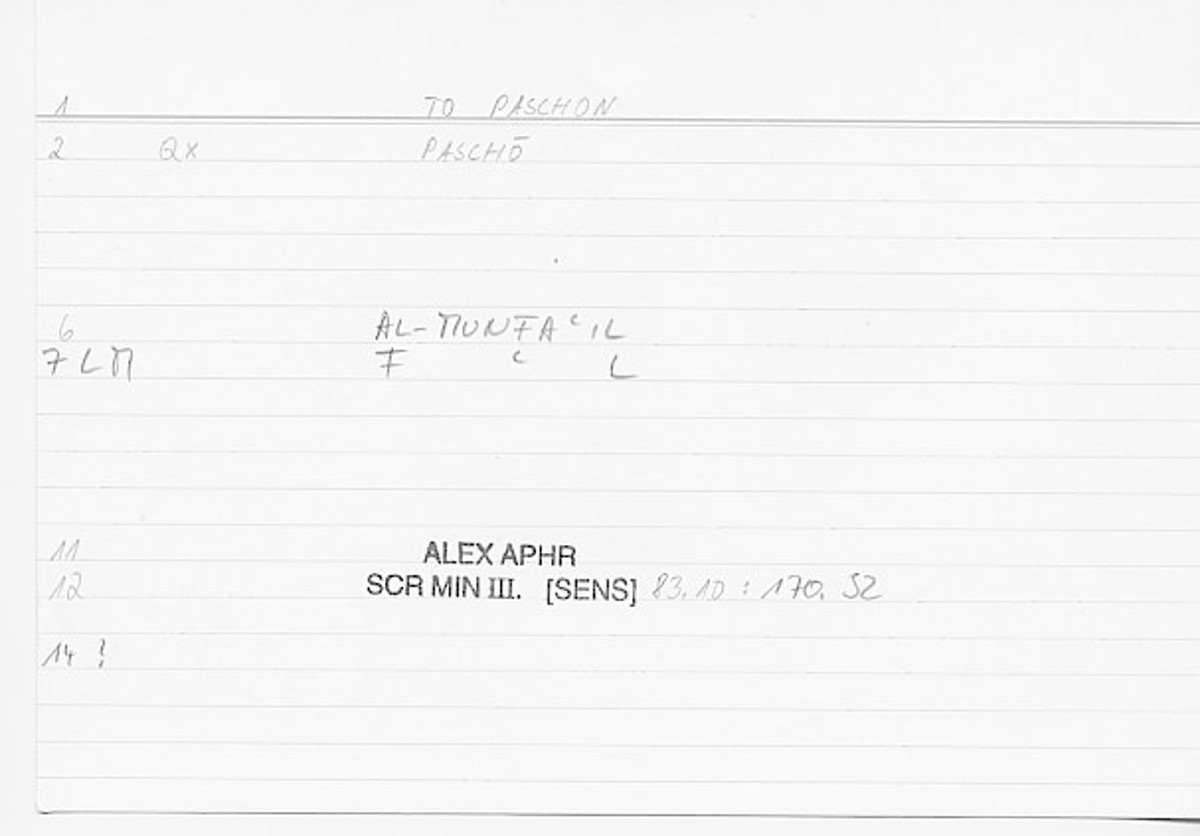 1 TO PASCHON
2 QX PASCHŌ
6 AL-MUNFAʿIL
7 LM F ʿ L
11 ALEX APHR
12 SCR MIN III. [SENS] 83.10 : 170. 52
14 !